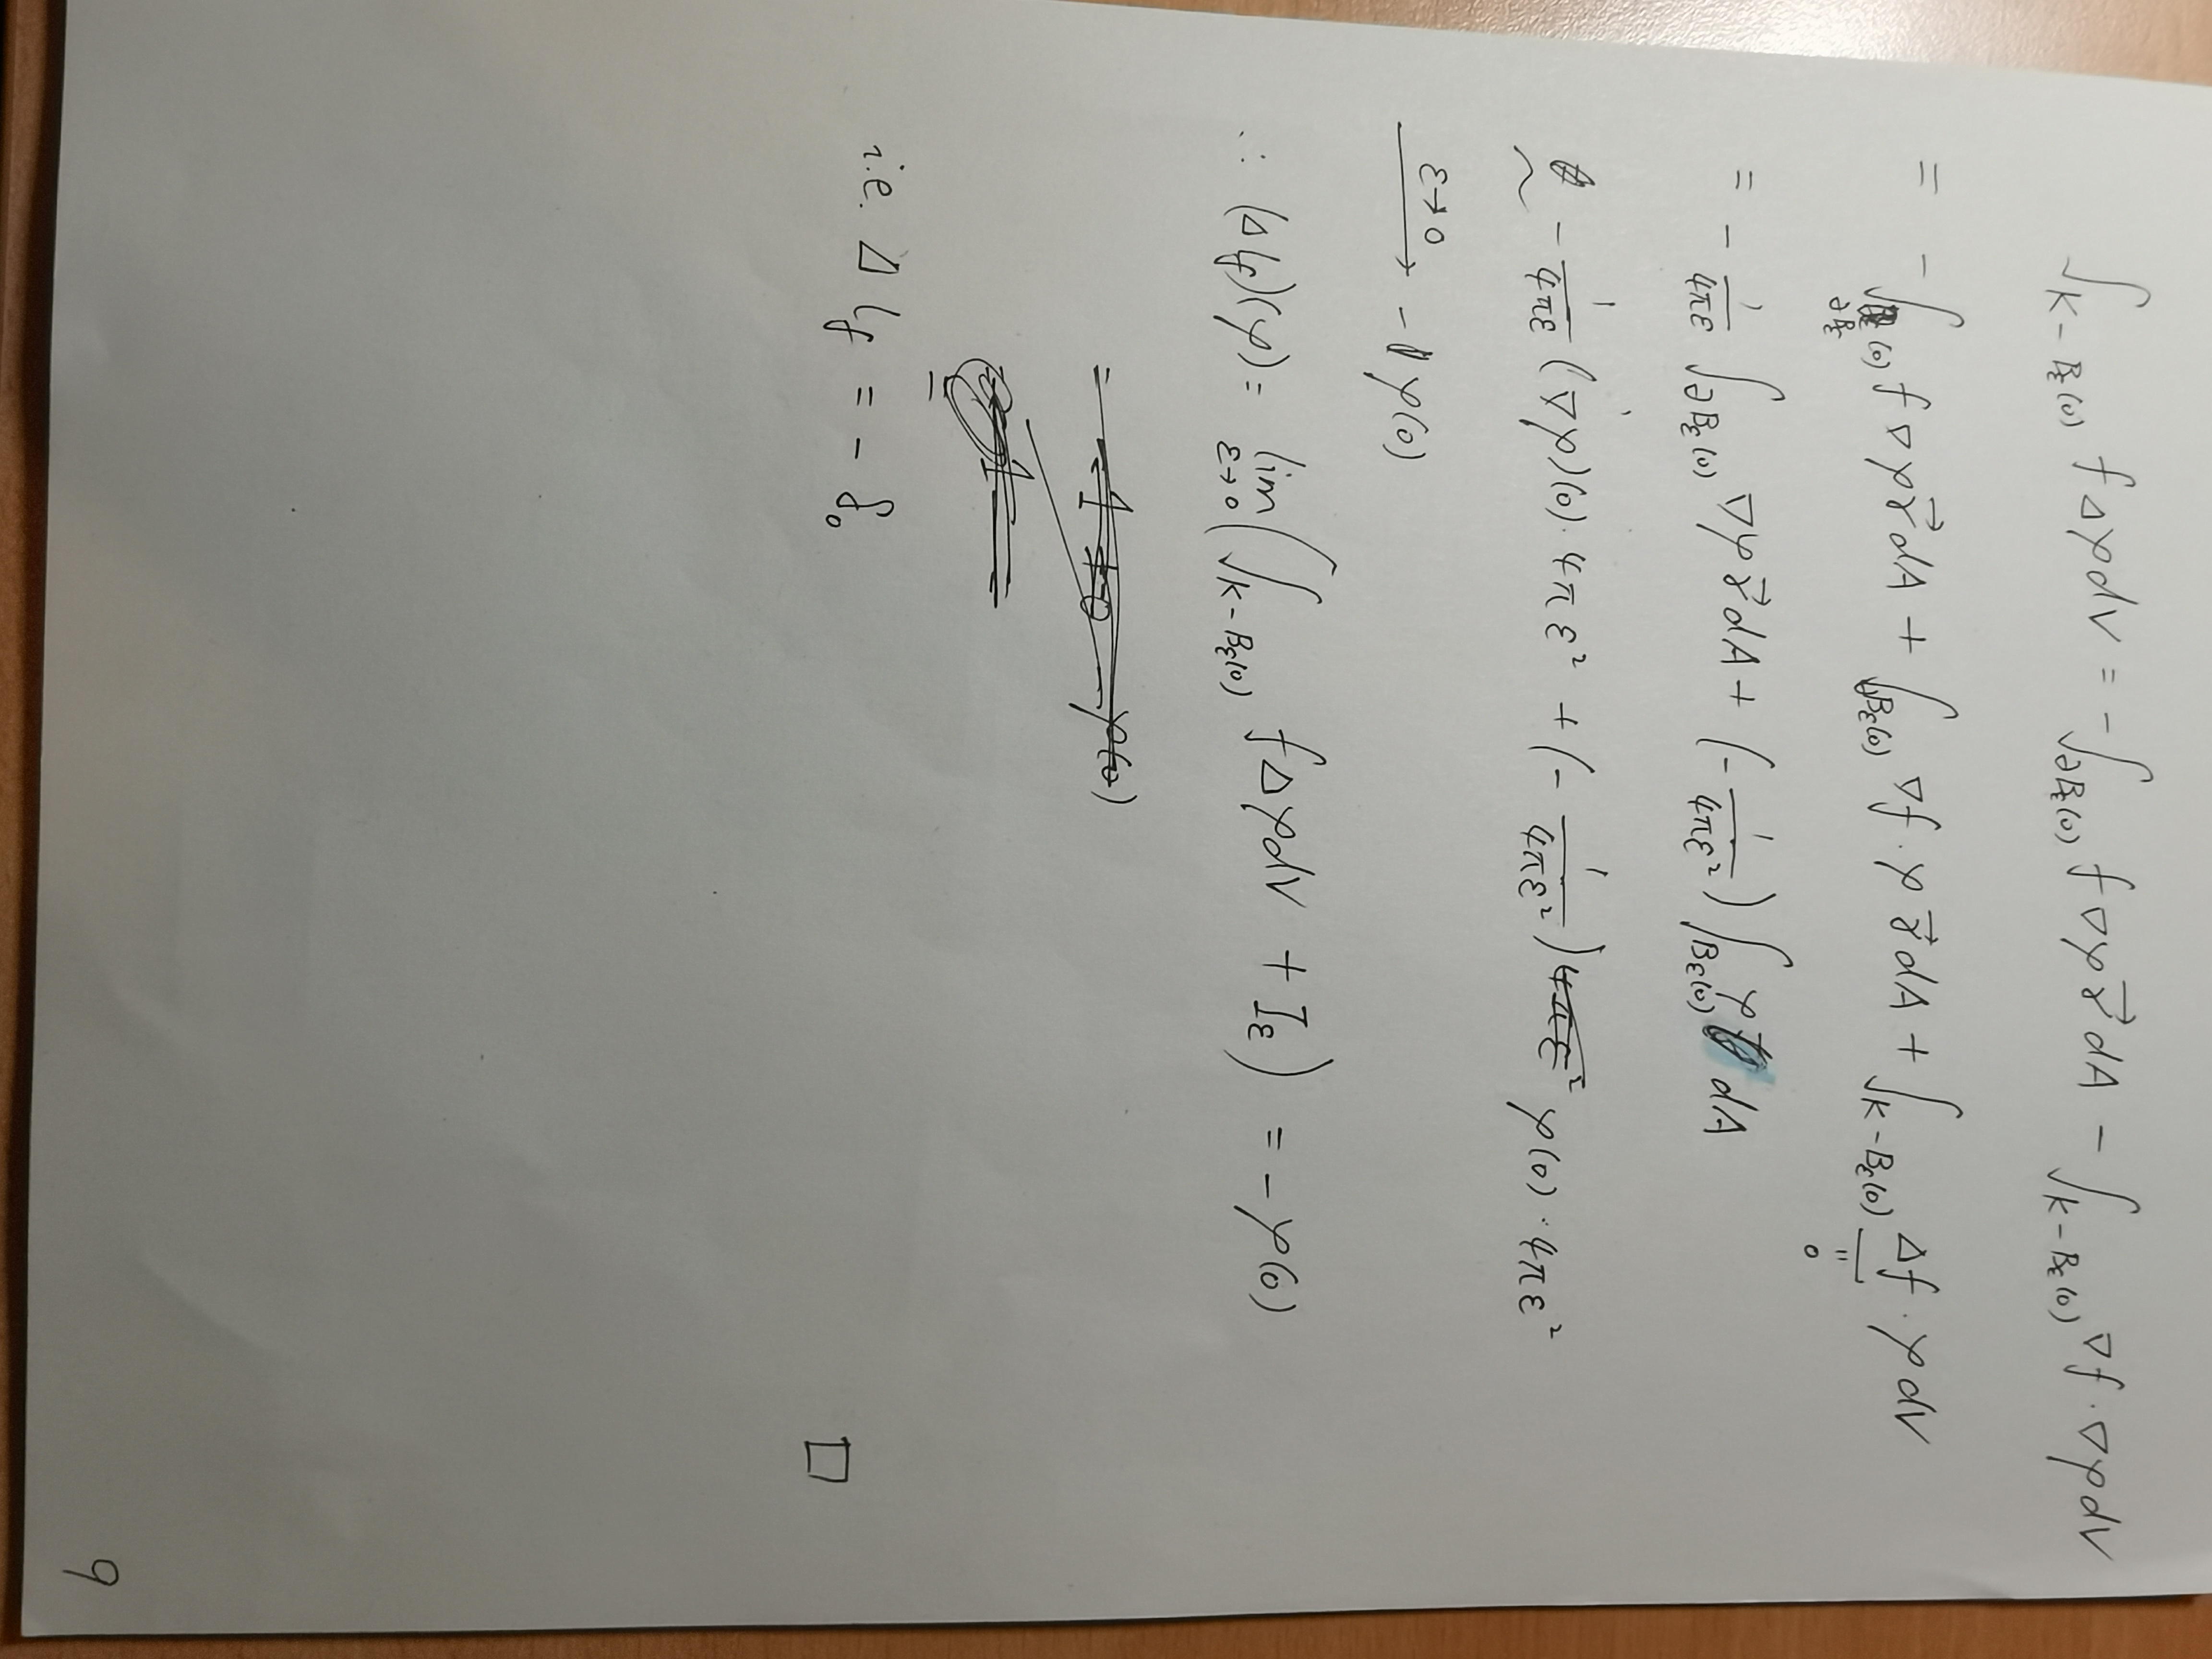 ∫_{K - B_ε(0)} f Δφ dV = - ∫_{∂B_ε(0)} f ∇φ \vec{r} dA - ∫_{K - B_ε(0)} ∇f · ∇φ dV
= - ∫_{∂B_ε(0)} f ∇φ \vec{r} dA + ∫_{∂B_ε(0)} ∇f · φ \vec{r} dA + ∫_{K - B_ε(0)} Δf · φ dV
∂B_ε
"
0
= - 1/(4πε) ∫_{∂B_ε(0)} ∇φ \vec{r} dA + (- 1/(4πε²)) ∫_{B_ε(0)} φ dA
~ - 1/(4πε) (∇φ)(0) · 4πε² + (- 1/(4πε²)) φ(0) · 4πε²
ε→0 → - φ(0)
∴ (Δl_f)(φ) = lim_{ε→0} ( ∫_{K - B_ε(0)} f Δφ dV + I_ε ) = - φ(0)
i.e. Δ l_f = - δ_0
□
9